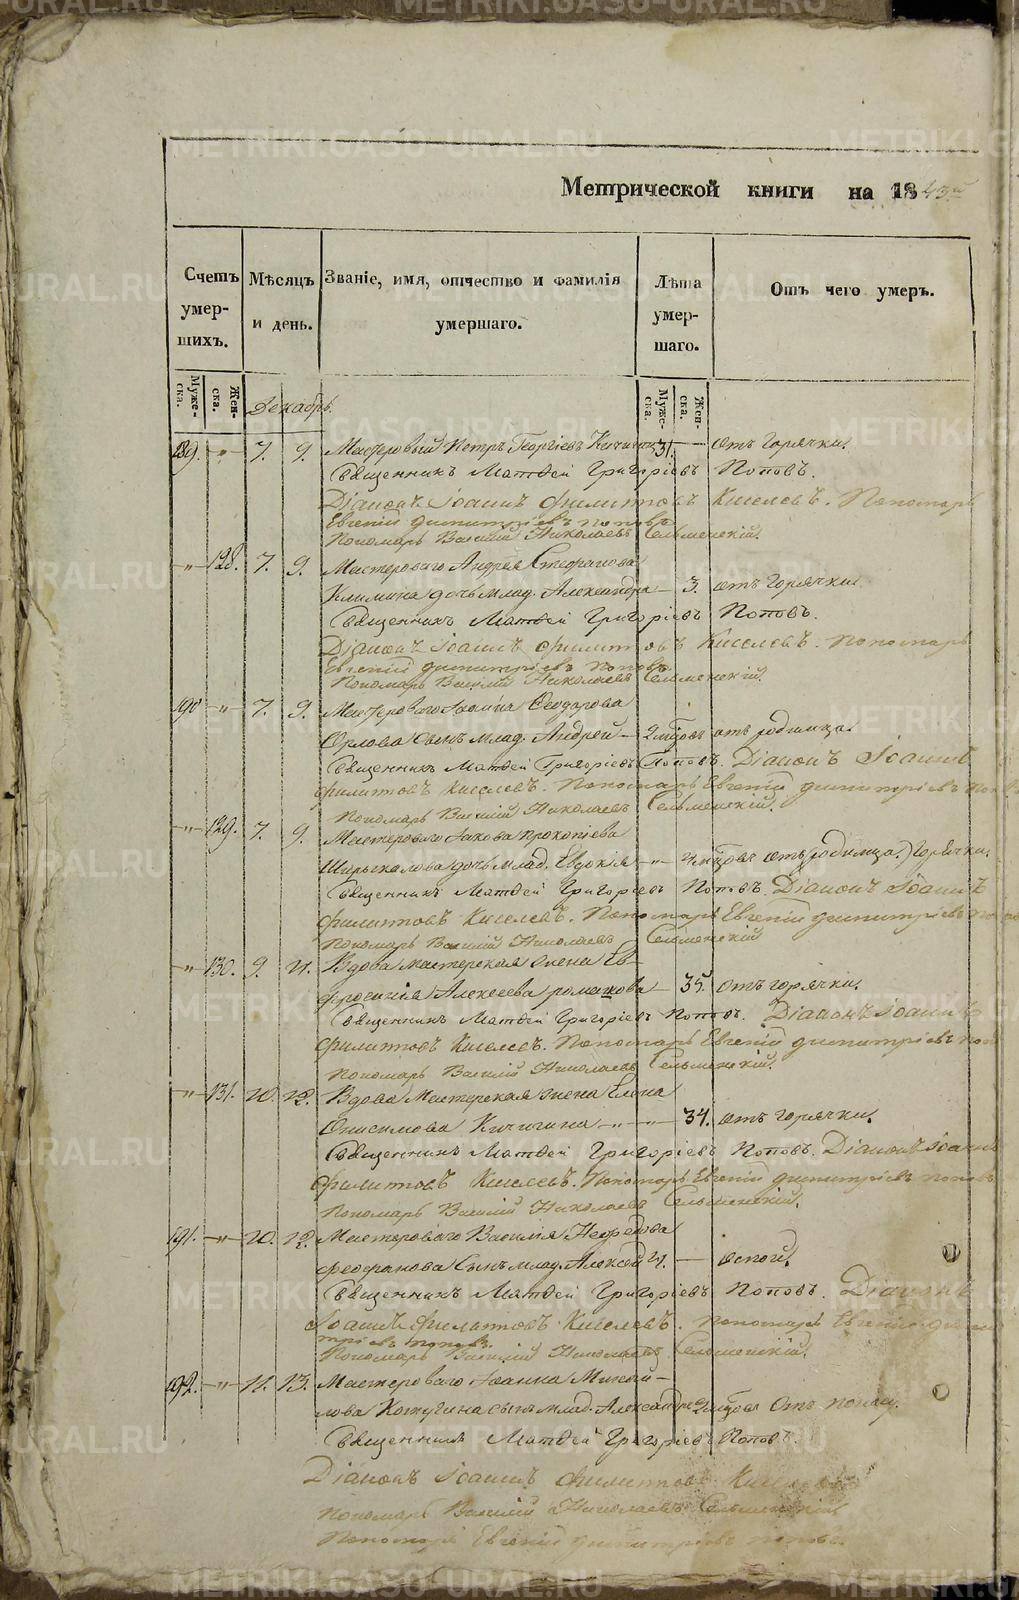 Метрической книги на 1843 г
Счетъ умер- шихъ.
Мѣсяцъ и день.
Званіе, имя, отчество и фамилія умершаго.
Лѣта умер- шаго.
Отъ чего умеръ.
Муже- ска.
Жен- ска.
Декабрь.
Муже- ска.
Жен- ска.
189. —"— 7. 9. Мастеровый Петръ Георгіевъ 31. — отъ горячки.
Священникъ Матѳей Григоріевъ Поповъ.
Діаконъ Іоаннъ Филиповъ Киселевъ. Пономарь
Евгеній Димитріевъ Поповъ
Пономарь Василій Николаевъ Сельменскій.
—"— 128. 7. 9. Мастероваго Андрея Стефанова
Климина дочь млад. Александра — 3. отъ горячки.
Священникъ Матѳей Григоріевъ Поповъ.
Діаконъ Іоаннъ Филиповъ Киселевъ. Пономарь
Евгеній Димитріевъ Поповъ.
Пономарь Василій Николаевъ Сельменскій.
190 —"— 7. 9. Мастероваго Іоанна Ѳеодорова
Орлова сынъ млад. Андрей — 2 мѣсѧцовъ отъ родимца.
Священникъ Матѳей Григоріевъ Поповъ. Діаконъ Іоаннъ
Филиповъ Киселевъ. Пономарь Евгеній Димитріевъ
Пономарь Василій Николаевъ Сельменскій.
—"— 129. 7. 9. Мастероваго Іакова Прокопіева
дочь млад. Евдокія —"— отъ родимца. горячки.
Священникъ Матѳей Григоріевъ Поповъ. Діаконъ Іоаннъ
Филиповъ Киселевъ. Пономарь Евгеній Димитріевъ
Пономарь Василій Николаевъ Сельменскій
—"— 130. 9. 11. Вдова мастерская жена Ев-
фросинія Алексеева Ромашкова — 35. отъ горячки.
Священникъ Матѳей Григоріевъ Поповъ. Діаконъ Іоаннъ
Филиповъ Киселевъ. Пономарь Евгеній Димитріевъ
Пономарь Василій Николаевъ Сельменскій.
—"— 131. 10. 12. Вдова мастерская жена Елена
Онисимова Кичигина —"— 34. отъ горячки.
Священникъ Матѳей Григоріевъ Поповъ. Діаконъ Іоаннъ
Филиповъ Киселевъ. Пономарь Евгеній Димитріевъ Поповъ
Пономарь Василій Николаевъ Сельменскій.
191. —"— 10. 12. Мастероваго Василія Нефедова
Феофанова сынъ млад. Алексей — оспой.
Священникъ Матѳей Григоріевъ Поповъ. Діаконъ
Іоаннъ Филиповъ Киселевъ. Пономарь Евгеній Дими-
тріевъ Поповъ.
Пономарь Василій Николаевъ Сельменскій.
192. —"— 11. 13. Мастероваго Іоанна Михай-
лова сынъ млад. Александръ
Священникъ Матѳей Григоріевъ Поповъ.
Діаконъ Іоаннъ Филиповъ Киселевъ
Пономарь Василій Николаевъ Сельменскій
Пономарь Евгеній Димитріевъ Поповъ.
METRIKI.GASO-URAL.RU